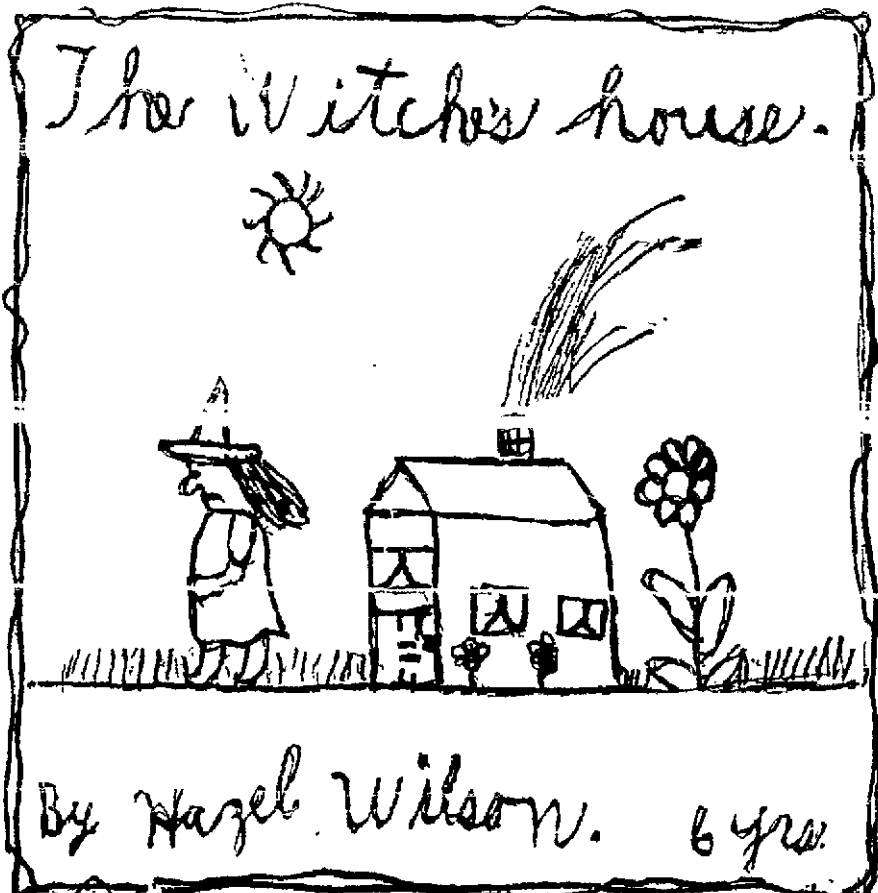 The Witche's house.
By Hazel Wilson. 6 yrs.